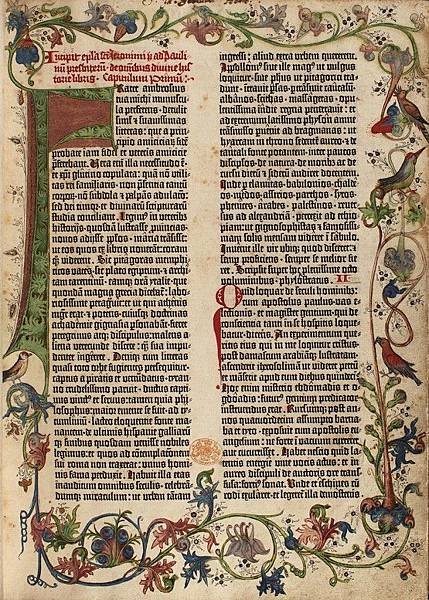 Incipit epistola sancti iheronimi ad paulinum
presbiterum de omnibus divine historie
libris. Capitulum primum.
Frater ambrosius
tua michi munuscula
perferens. detulit
simul et suavissimas
litteras: que a principio
amiciciarū fidē
probate iam fidei et veteris amicicie
preferebant. Vera enī illa necessitudo est.
et xpi glutino copulata: quā nō utilitas
rei familiaris. nō presentia tantū
corporū. nō subdola et palpās adulacō:
sed dei timor. et divinarū scripturarū
studia conciliant. Legimus in veteribus
historiis. quosdā lustrasse puincias.
novos adisse ppłos. maria trāsisse:
ut eos quos ex libris noverāt: coram
qꝫ viderent. Sic pitagoras memphiticos
vates. sic plato egiptum. et architam
tarentinū. eandēqꝫ orā ytalie. que
quondā magna grecia dicebat̄: laboriosissime
peragravit: ut qui athenis
mgr̄ erat. et potens. cuiusqꝫ doctrinas
achademie gignasia psonabāt. fieret
peregrinus atqꝫ discipulus: malens aliena
verecunde discere: qꝫ sua impudenter
ingerere. Deniqꝫ cum litteras
quasi toto orbe fugientes persequit̄.
captus a piratis et venundatus. tyranno
crudelissimo paruit. ductus captivus
vinctus et servus: tamen quia philosophus:
maior emente se fuit. ad tytum
livium. lacteo eloquentie fonte manantem.
de ultimis hispanie galliarūqꝫ
finibus quosdam venisse nobiles
legimus: et quos ad contēplationem
sui roma non traxerat: unius hominis
fama perduxit. Habuit illa etas
inauditum omnibus seculis. celebrandumqꝫ
miraculum: ut urbem tantam
ingressi: aliud extra urbem quererent.
Apollonius sive ille magus ut vulgus
loquitur. sive phus ut pitagorici tradunt.
intravit psas. ptrāsivit caucasū.
albanos. scithas. massagetas. opulentissima
indie regna penetravit: et
ad extremum latissimo physon amne
trāsmisso puenit ad bragmanas: ut
hyarcam in throno sedentē aureo. et de
tantali fonte potantem. inter paucos
discipulos. de natura. de moribꝫ ac de
cursu dierū et siderū audiret docentem.
Inde p elamitas. babilonios. chaldeos.
medos. assirios. parthos. syros.
phenices. arabes. palestinos. reversus
ad alexandriā. perrexit ad ethiopiam:
ut gignosophistas et famosissimam
solis mensam videret ī sabulo.
Invenit ille vir ubiqꝫ quod disceret: et
semp proficiens. semper se melior fieret.
Scripsit super hoc plenissime octo
voluminibus. phylostratus. II
Quid loquar de seculi hominibꝫ:
cum apostolus paulus. vas electionis.
et magister gentium. qui de
conscientia tanti in se hospitis loquebatur.
dicens. An experimentum queritis
eius qui in me loquitur cristus:
post damascum arabiāqꝫ lustratam:
ascenderit iherosolimā ut videret petrū
et māserit apud eum diebus quindecī.
Hoc enim misterio ebdomadis et ogdoadis:
futur9 gentium predicator
instruendus erat. Rursumqꝫ post annos
quatuordecim assumpto barnaba
et tyto. exposuit cum apostolis evangelium:
ne forte ī vacuum curreret
aut cucurrisset. Habet nescio quid latentis
energie vive vocis actus: et in
aures discipuli de auctoris ore transfusa:
forti9 sonat. Unde et eschines cū
rodi exularet. et legeret̄ illa demostenis